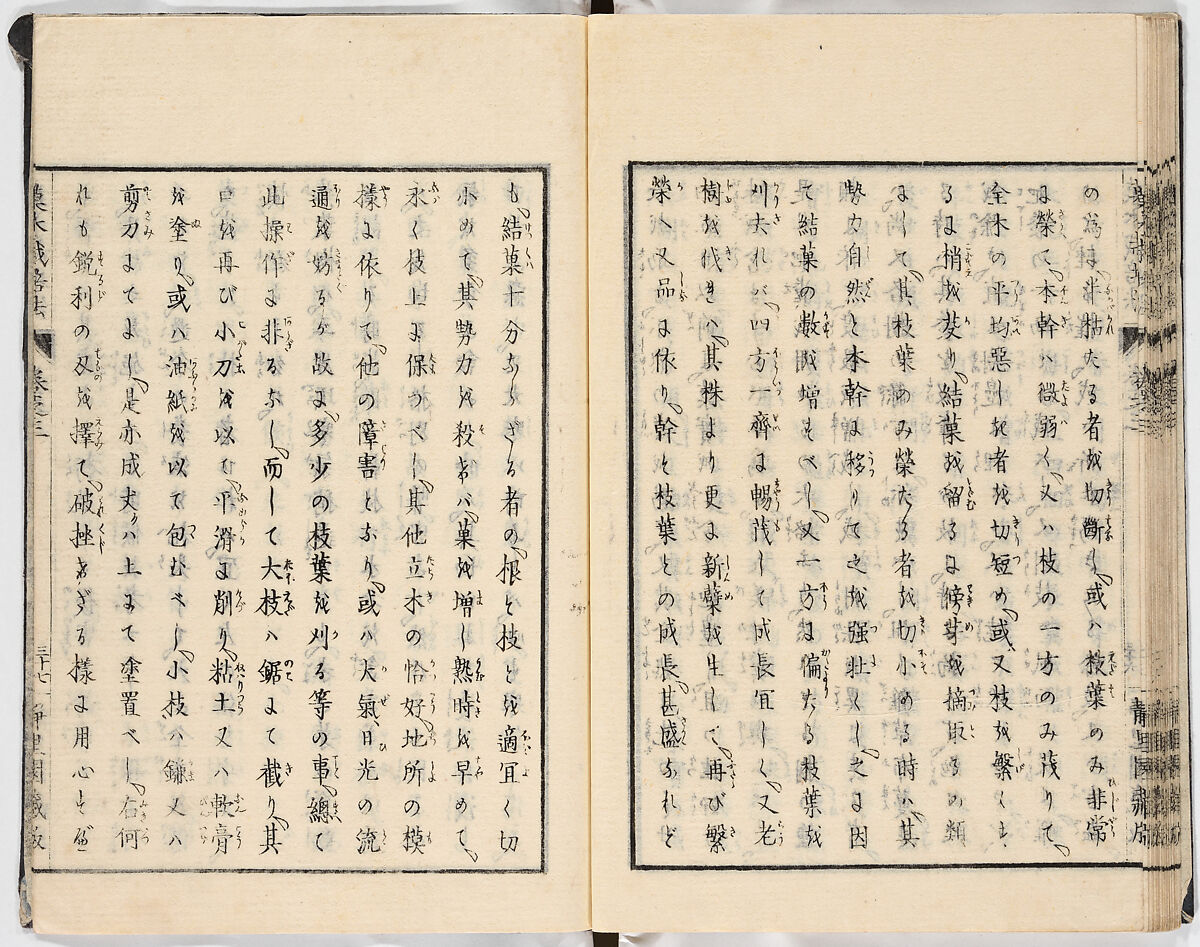 の為に半枯たる者を切斷し或ハ枝葉のみ非常
に榮て本幹ハ微弱く又ハ枝の一方のみ茂りて
全木の平均惡しき者を切短め或又枝を繁くす
るに梢を芟り結菓を留るに傍芽を摘取るの類
にして其枝葉のみ榮たる者を切小める時ハ其
勢力自然と本幹に移りて之を强壯くし之に因
て結菓の數を增すべし又一方に偏たる枝葉を
刈去れバ四方一齊に暢茂して成長冝しく又老
樹を伐きハ其株より更に新蘖を生じて再び繁
榮へ又品に依り幹と枝葉との成長甚盛なれど
も結菓十分ならざる者の根と枝とを適冝く切
小めて其勢力を殺けバ菓を增し熟時を早めて
永く枝上に保つべし其他立木の恰好地所の模
樣に依りて他の障害となり或ハ大氣日光の流
通を妨るが故に多少の枝葉を刈る等の事總て
此操作に非るなし而して大枝ハ鋸にて截り其
口を再び小刀を以て平滑に削り粘土又ハ軟膏
を塗り或ハ油紙を以て包むべし小枝ハ鎌又ハ
剪刀にてよし是亦成丈ハ上にて塗置べし右何
れも鋭利の刄を擇て破挫けざる樣に用心すべ
菓木栽培法 卷之三 三十七 靜里園藏版